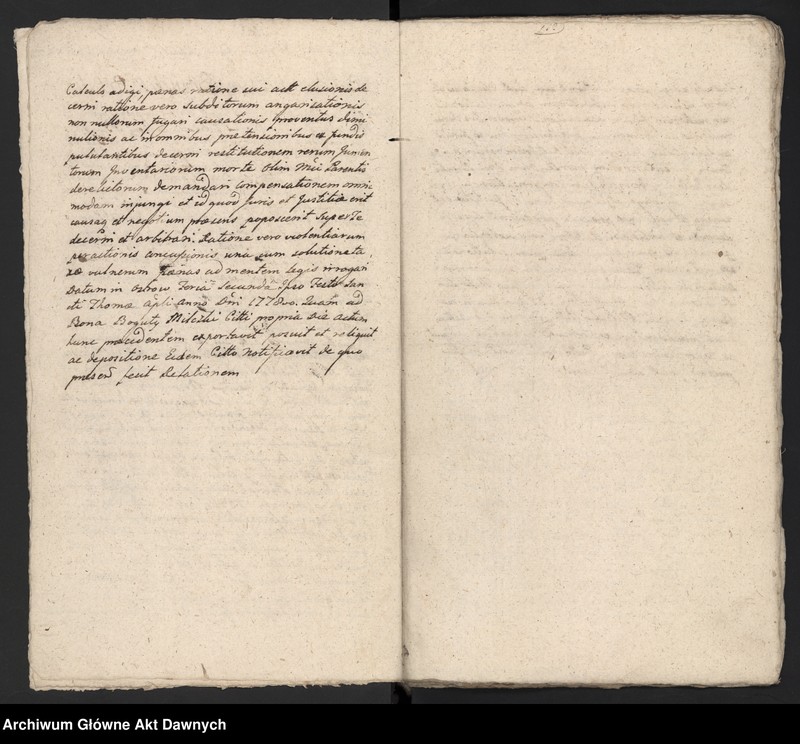 Calculo adigi, pænas ratione sui act elusionis de
cerni ratione vero subditorum angarisationis
non nullorum fugari causationis proventus dimi
nutionis ac in omnibus prætensionibus ex fundo
pullulantibus decerni restitutionem rerum Jumen
torum Inventariorum morte olim Parentis
derelictorum demandari compensationem omni
modam injungi et id quod Juris et Justitiæ erit
causaq et negotium præsens poposcerit Super Te
decerni et arbitrari. Ratione vero violentiarum
peractionis concussionis una cum solutione ta
xæ vulnerum Pænas ad mentem legis irrogari
Datum in Ostrow Feria Secunda Ipso Festo San
cti Thomæ Apli Anno Dni Quam ad
Bona Boguty Citti propria Die actum
hunc præcedentem exportavit posuit et reliquit
ac depositione eidem Citto Notificavit de quo
præsen fecit Relationem
Archiwum Główne Akt Dawnych